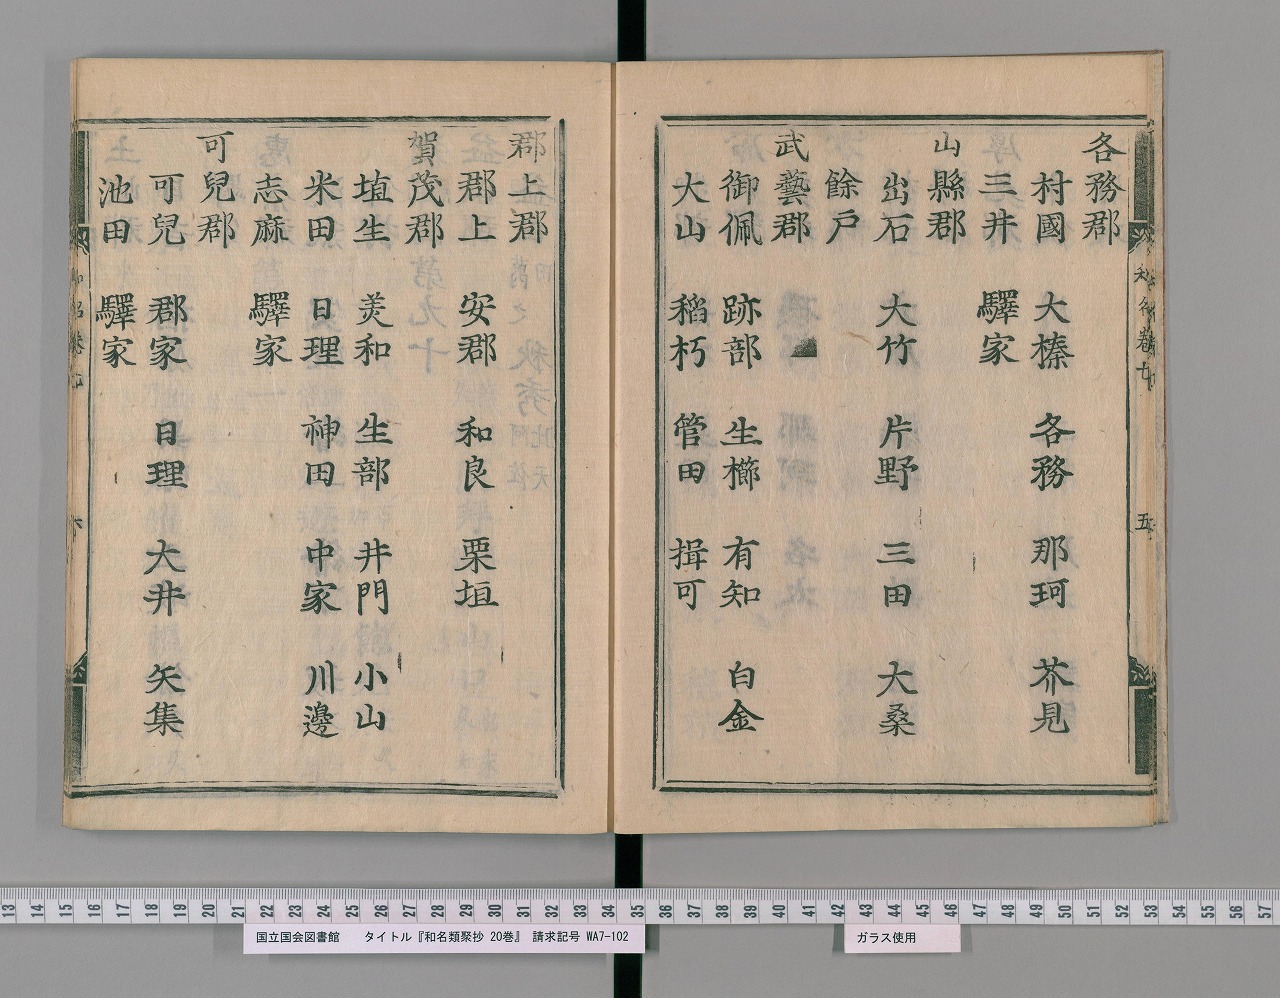 各務郡
村國 大榛 各務 那珂 芥見
三井 驛家
山縣郡
出石 大竹 片野 三田 大桑
餘戸
武藝郡
御佩 跡部 生櫛 有知 白金
大山 稻朽 管田 揖可
和名卷七
五
郡上郡
郡上 安郡 和良 栗垣
賀茂郡
埴生 美和 生部 井門 小山
米田 日理 神田 中家 川邊
志麻 驛家
可兒郡
可兒 郡家 日理 大井 矢集
池田 驛家
六
13 14 15 16 17 18 19 20 21 22 23 24 25 26 27 28 29 30 31 32 33 34 35 36 37 38 39 40 41 42 43 44 45 46 47 48 49 50 51 52 53 54 55 56 57
国立国会図書館 タイトル『和名類聚抄 20巻』 請求記号 WA7-102
ガラス使用